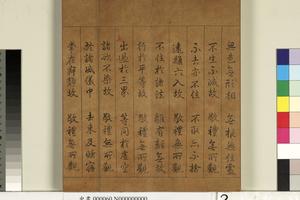 無色無形相 無根無住處
不生不滅故 敬禮無所觀
不去亦不住 不取亦不捨
遠離六入故 敬禮無所觀
不住於諸法 離有離無故
行於平等故 敬禮無所觀
出過於三界 等同於虛空
諸欲不染故 敬禮無所觀
於諸威儀中 去來及睡寤
常在寂靜故 敬禮無所觀
000060 N000000000